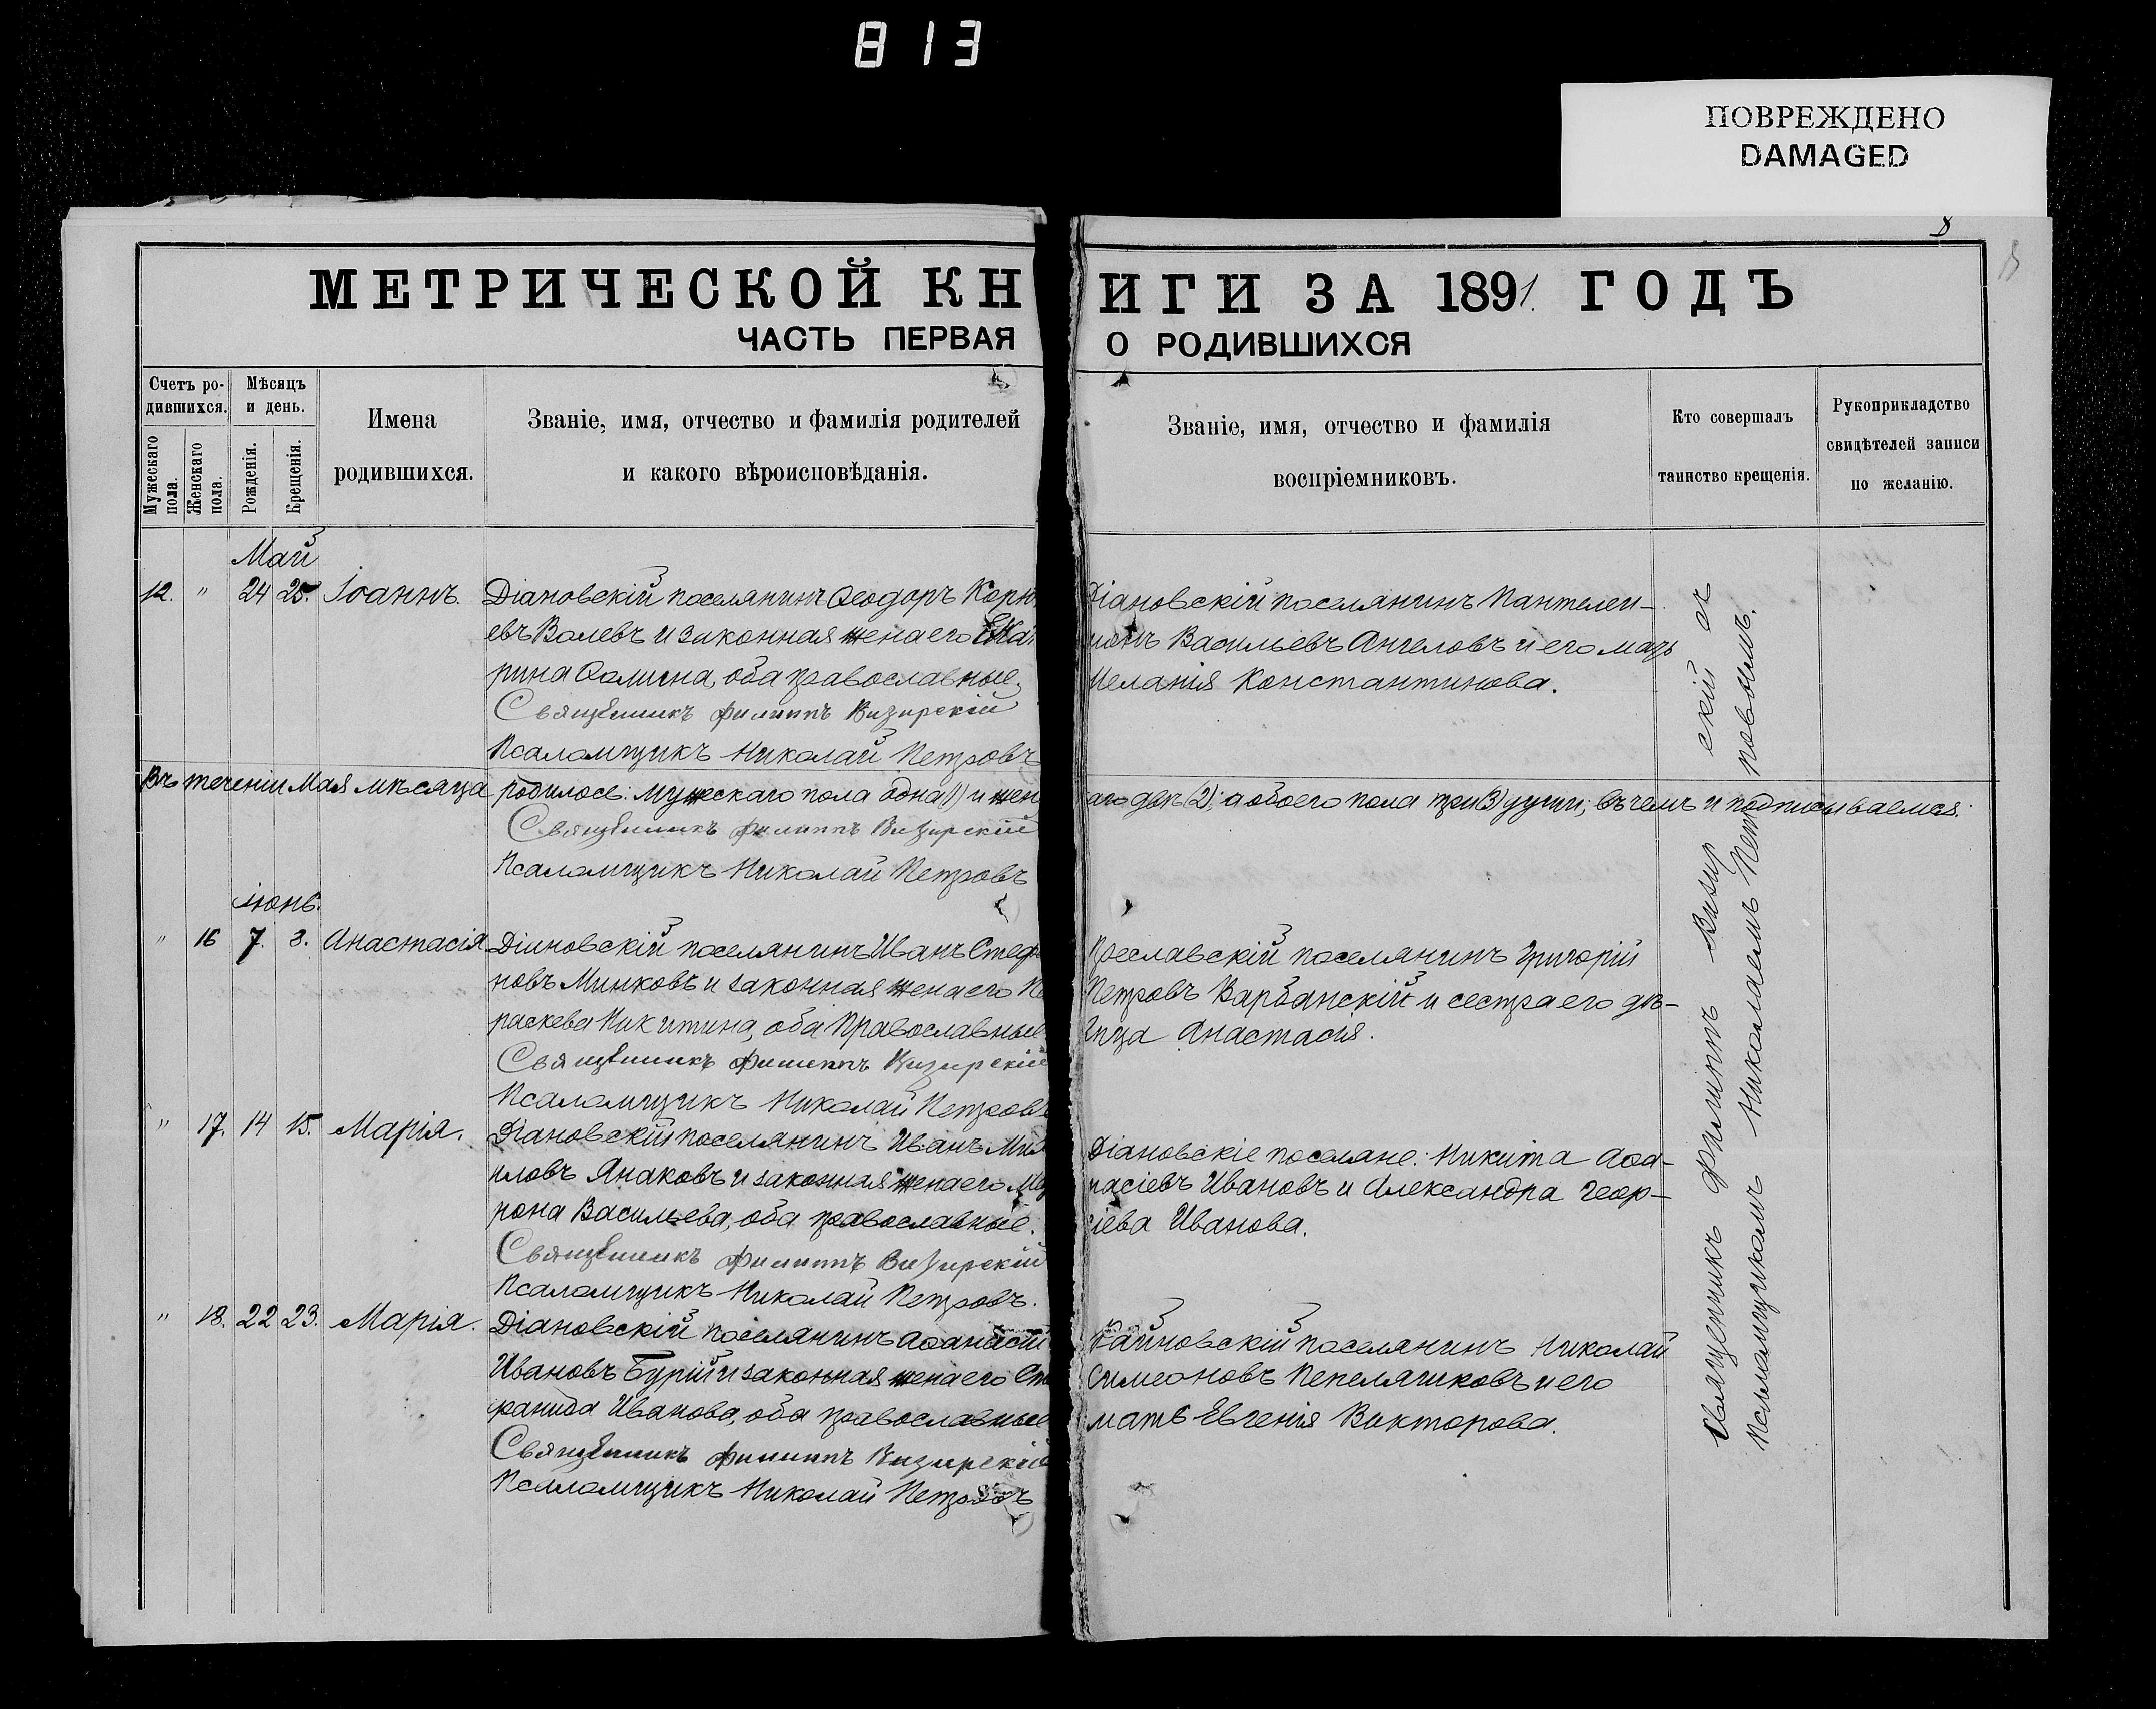 813
ПОВРЕЖДЕНО
DAMAGED
8
МЕТРИЧЕСКОЙ КНИГИ ЗА 1891 ГОДЪ
ЧАСТЬ ПЕРВАЯ О РОДИВШИХСЯ
Счетъ ро-
дившихся.
Мужескаго пола.
Женскаго пола.
Мѣсяцъ
и день.
Рожденія.
Крещенія.
Имена
родившихся.
Званіе, имя, отчество и фамилія родителей
и какого вѣроисповѣданія.
Званіе, имя, отчество и фамилія
воспріемниковъ.
Кто совершалъ
таинство крещенія.
Рукоприкладство
свидѣтелей записи
по желанію.
Май
12. " 24 25. Іоаннъ.
Діановскій поселянинъ Ѳеодоръ Корн
евъ Волевъ и законная жена его Ека
рина Ѳомина, оба православные.
Священникъ Филиппъ Визирскій
Псаломщикъ Николай Петровъ
Діановскій поселянинъ Пантелеи-
монъ Васильевъ Ангеловъ и его мать
Меланія Константинова.
Въ теченіи Мая мѣсяца родилось: мужескаго пола одна (1) и жен
аго двѣ (2); а обоего пола три (3) души; въ чемъ и подписываемся.
Священникъ Филиппъ Визирскій
Псаломщикъ Николай Петровъ
Іюнь.
" 16 7. 8. Анастасія.
Діановскій поселянинъ Иванъ Стефа
новъ Минковъ и законная жена его Па
раскева Никитина, оба Православные
Священникъ Филиппъ Визирскій
Псаломщикъ Николай Петровъ
Преславскій поселянинъ Григорій
Петровъ Варбанскій и сестра его дѣ-
вица Анастасія.
" 17. 14 15. Марія.
Діановскій поселянинъ Иванъ Ми
иловъ Янаковъ и законная жена его
рона Васильева, оба православные.
Священникъ Филиппъ Визирскій
Псаломщикъ Николай Петровъ.
Діановскіе поселяне: Никита Аѳа-
насіевъ Ивановъ и Александра Геор-
гіева Иванова.
" 18. 22 23. Марія.
Діановскій поселянинъ Аѳанасій
Ивановъ Бурій и законная жена его Ст
ранида Иванова, оба православные
Священникъ Филиппъ Визирскій
Псаломщикъ Николай Петровъ
Райновскій поселянинъ Николай
Симеоновъ Пепеляшковъ и его
мать Евгенія Викторова.
Священникъ Филиппъ Визирскій съ
Псаломщикомъ Николаемъ Петровымъ.